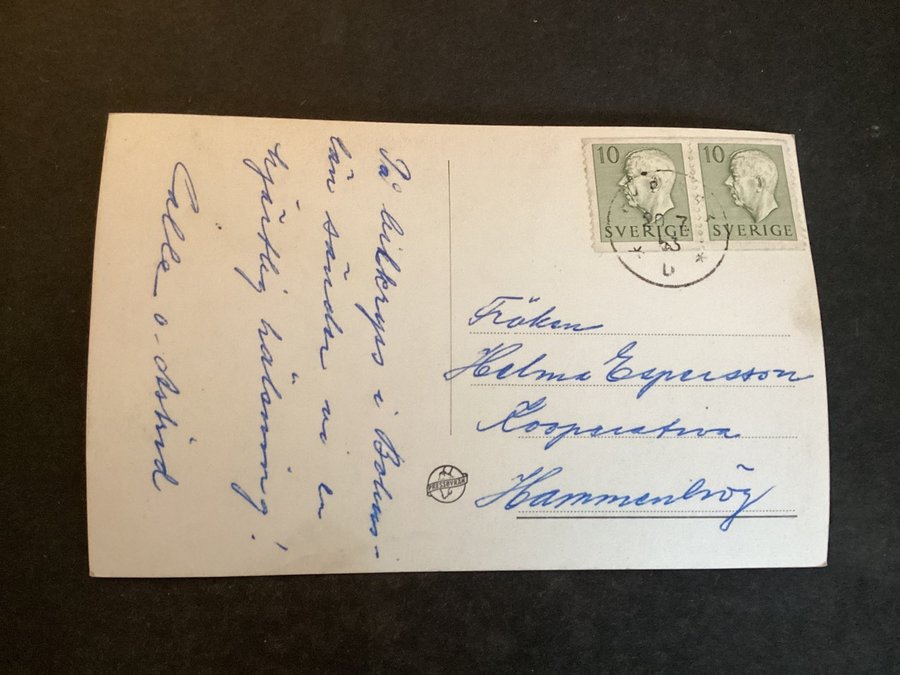 På bilkryss i Bohus-
län sänder vi en
hjärtlig hälsning!
Calle o. Astrid
10 10
SVERIGE SVERIGE
Fröken
Helma Espersson
Kooperativa
Hammenhög
PRESSBYRÅN